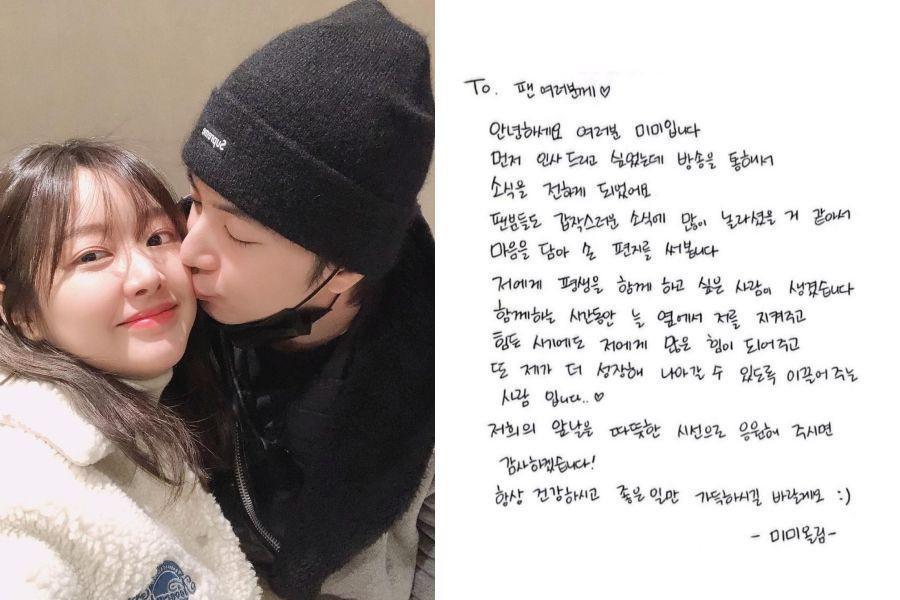 Supreme
To. 팬 여러분께♡
안녕하세요 여러분 미미입니다
먼저 인사드리고 싶었는데 방송을 통해서
소식을 전하게 되었어요
팬분들도 갑작스러운 소식에 많이 놀라셨을 거 같아서
마음을 담아 손 편지를 써봅니다
저에게 평생을 함께 하고 싶은 사람이 생겼습니다
함께하는 시간동안 늘 옆에서 저를 지켜주고
힘든 시기에도 저에게 많은 힘이 되어주고
또 제가 더 성장해 나아갈 수 있도록 이끌어 주는
사람 입니다..♡
저희의 앞날을 따뜻한 시선으로 응원해 주시면
감사하겠습니다!
항상 건강하시고 좋은 일만 가득하시길 바랄게요 :)
- 미미올림-